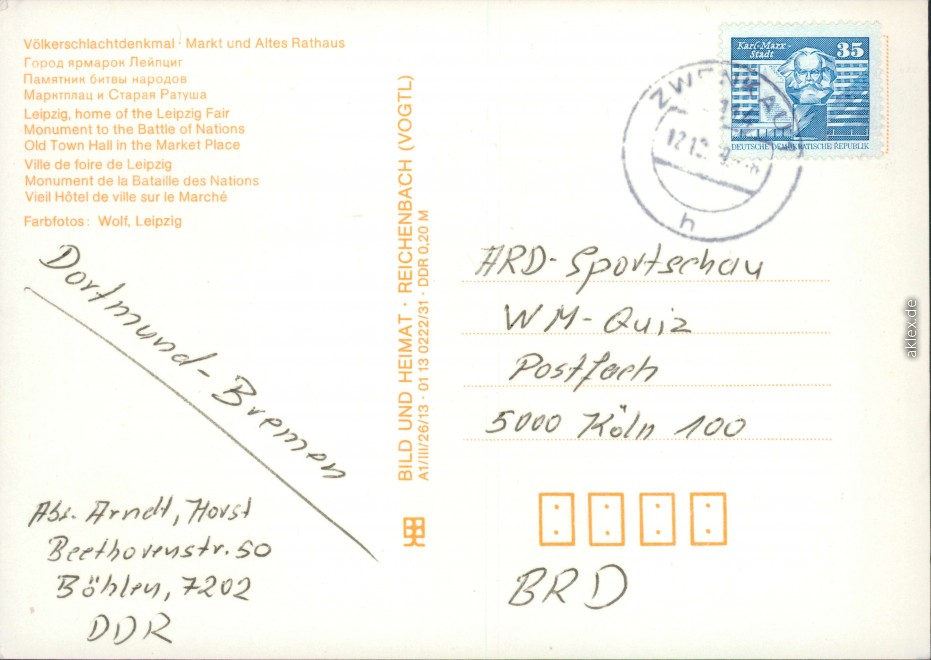 Völkerschlachtdenkmal · Markt und Altes Rathaus
Город ярмарок Лейпциг
Памятник битвы народов
Марктплац и Старая Ратуша
Leipzig, home of the Leipzig Fair
Monument to the Battle of Nations
Old Town Hall in the Market Place
Ville de foire de Leipzig
Monument de la Bataille des Nations
Vieil Hôtel de ville sur le Marché
Farbfotos: Wolf, Leipzig
Dortmund-Bremen
Abs. Arndt, Horst
Beethovenstr. 50
Böhlen, 7202
DDR
BILD UND HEIMAT · REICHENBACH (VOGTL)
A1/III/26/13 · 01 13 0222/31 · DDR 0,20 M
Karl-Marx-
Stadt
35
DEUTSCHE DEMOKRATISCHE REPUBLIK
ZWENKAU
h
ARD-Sportschau
WM-Quiz
Postfach
5000 Köln 100
BRD
aklex.de